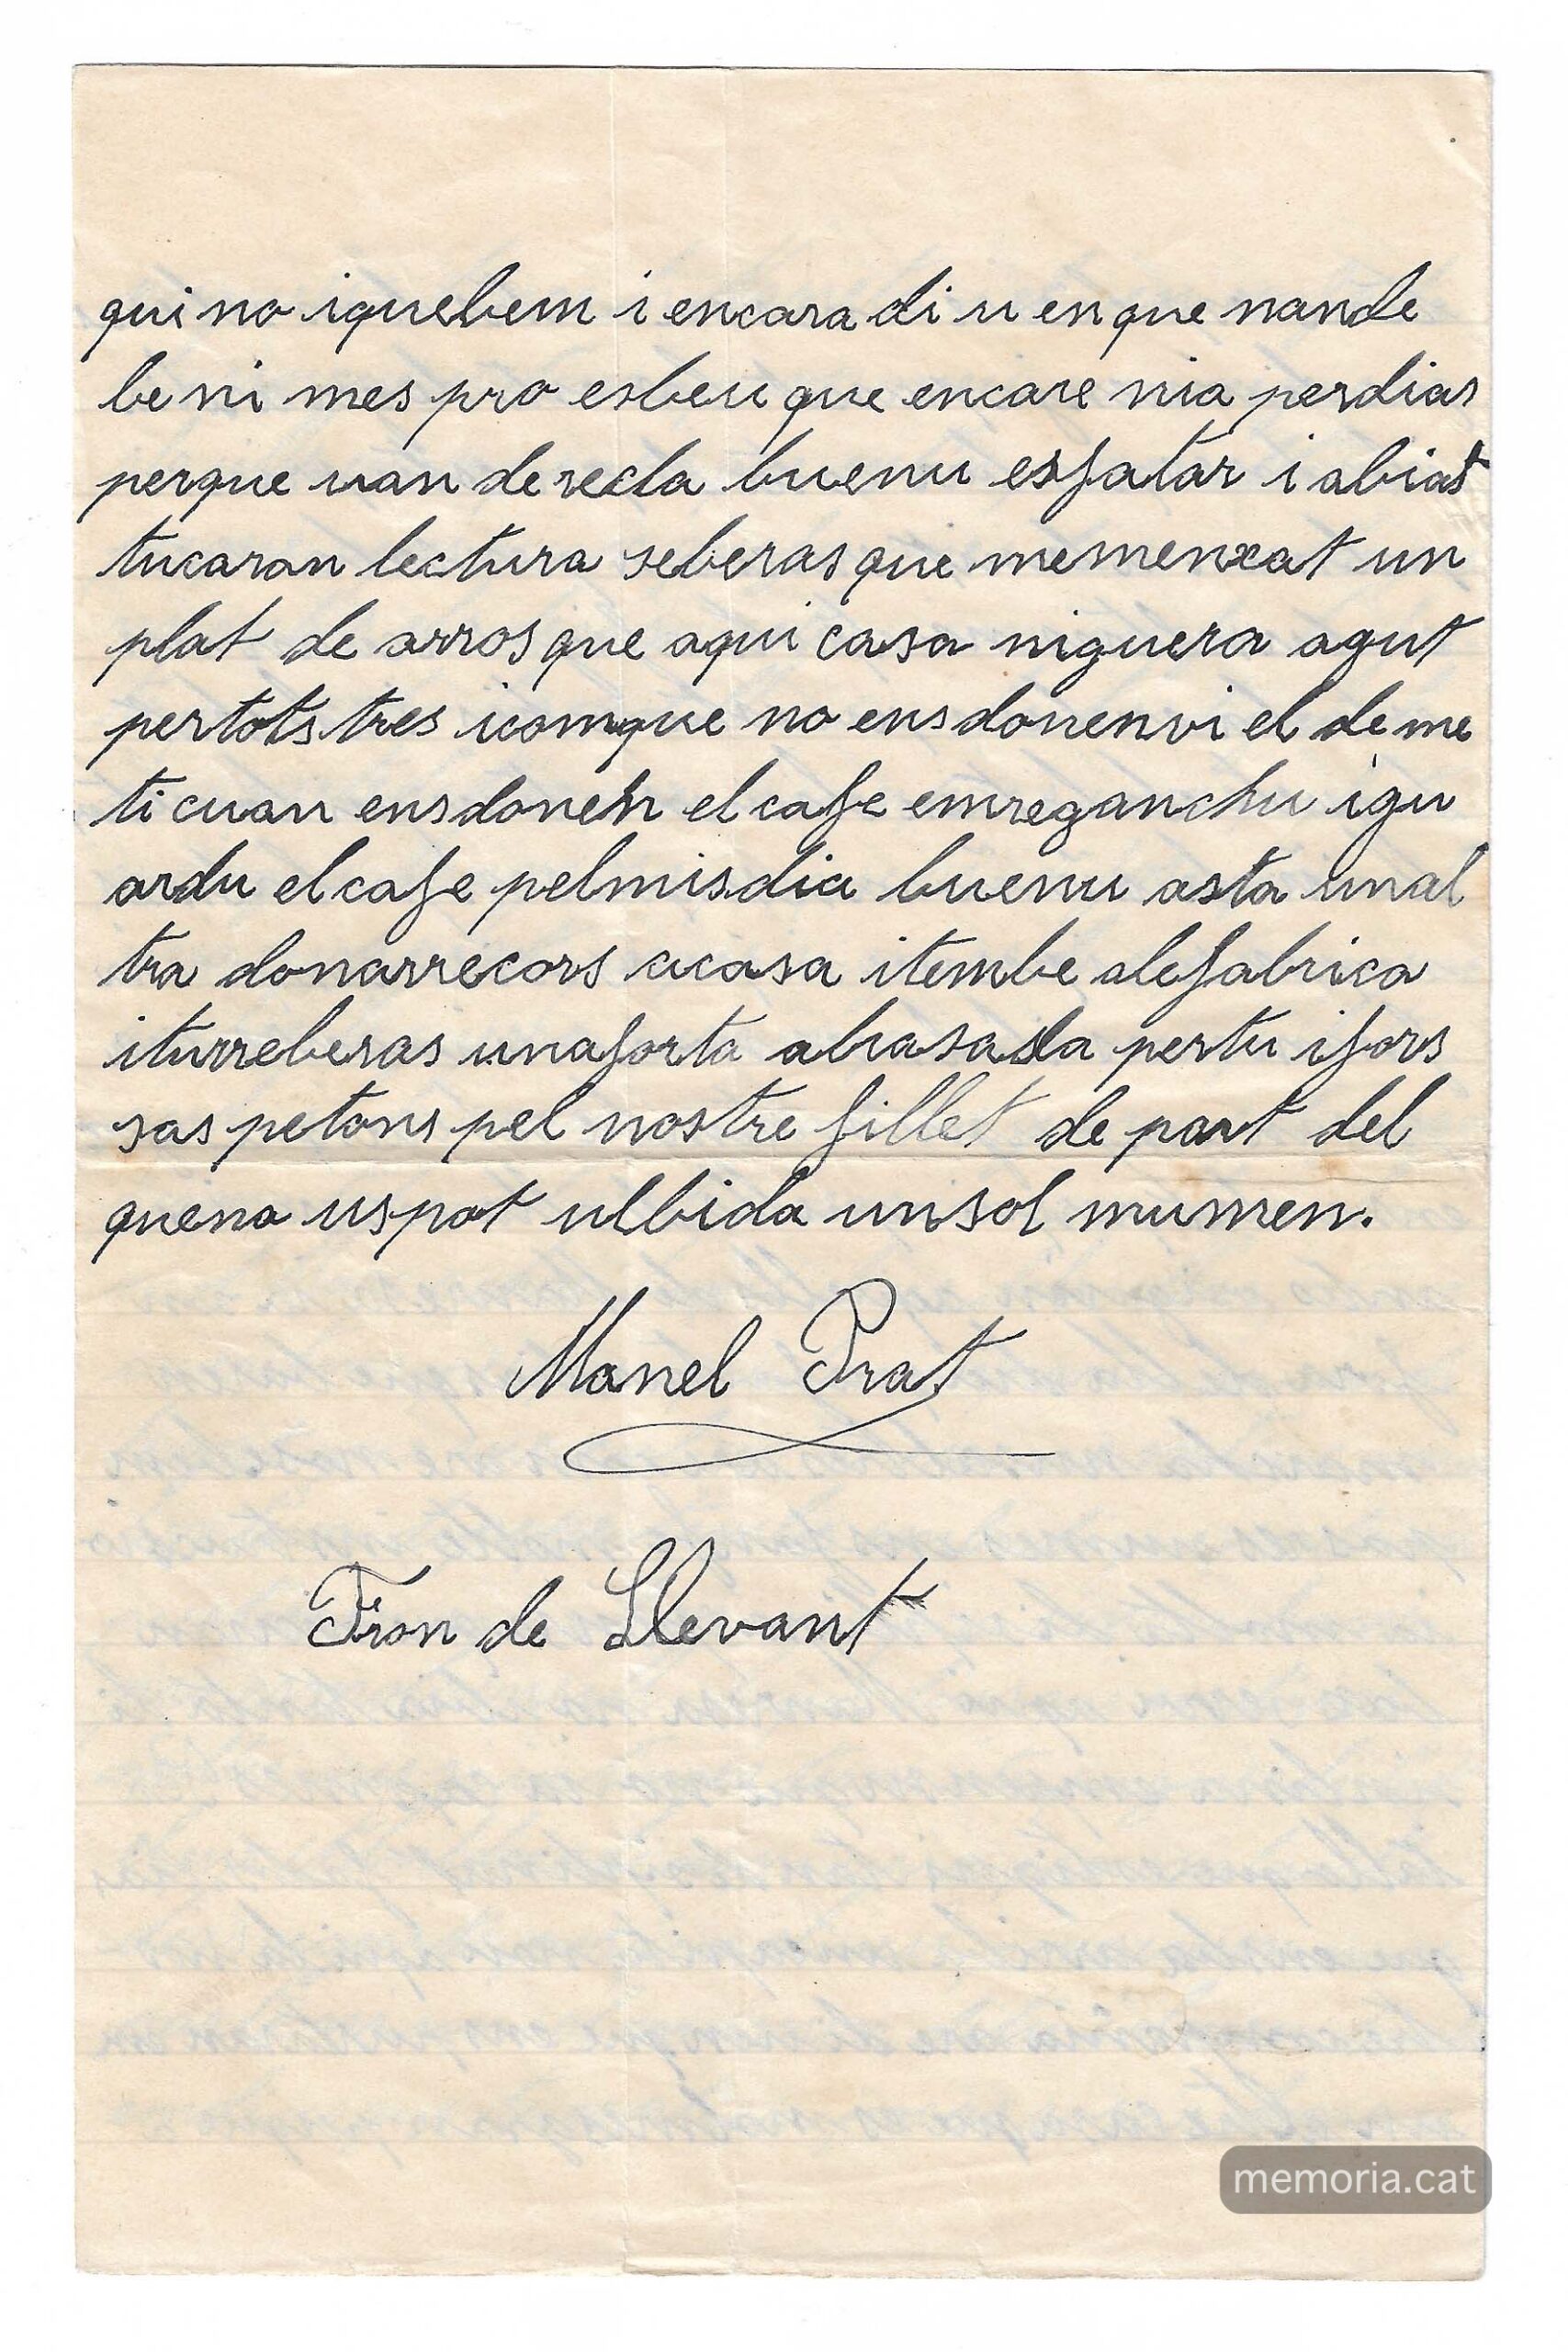 qui no iguebem i encara di u en que nande
be ni mes pro esbeu que encare nia perdias
perque van de recla buenu esfatar i abiat
tucaran lectura seberas que memenxat un
plat de arros que aqui casa niguera agut
pertots tres icomque no ens donenvi el de me
ti cuan ens donen el cafe emreganchu igu
ardu el cafe pelmisdia buenu asta unal
tra donarrecors acasa itembe alefabrica
iturreberas unaforta abrasada pertu ifors
sas petons pel nostre fillet de part del
queno us pot ulbida unsol mumen.
Manel Prat
Fron de Llevant
memoria.cat